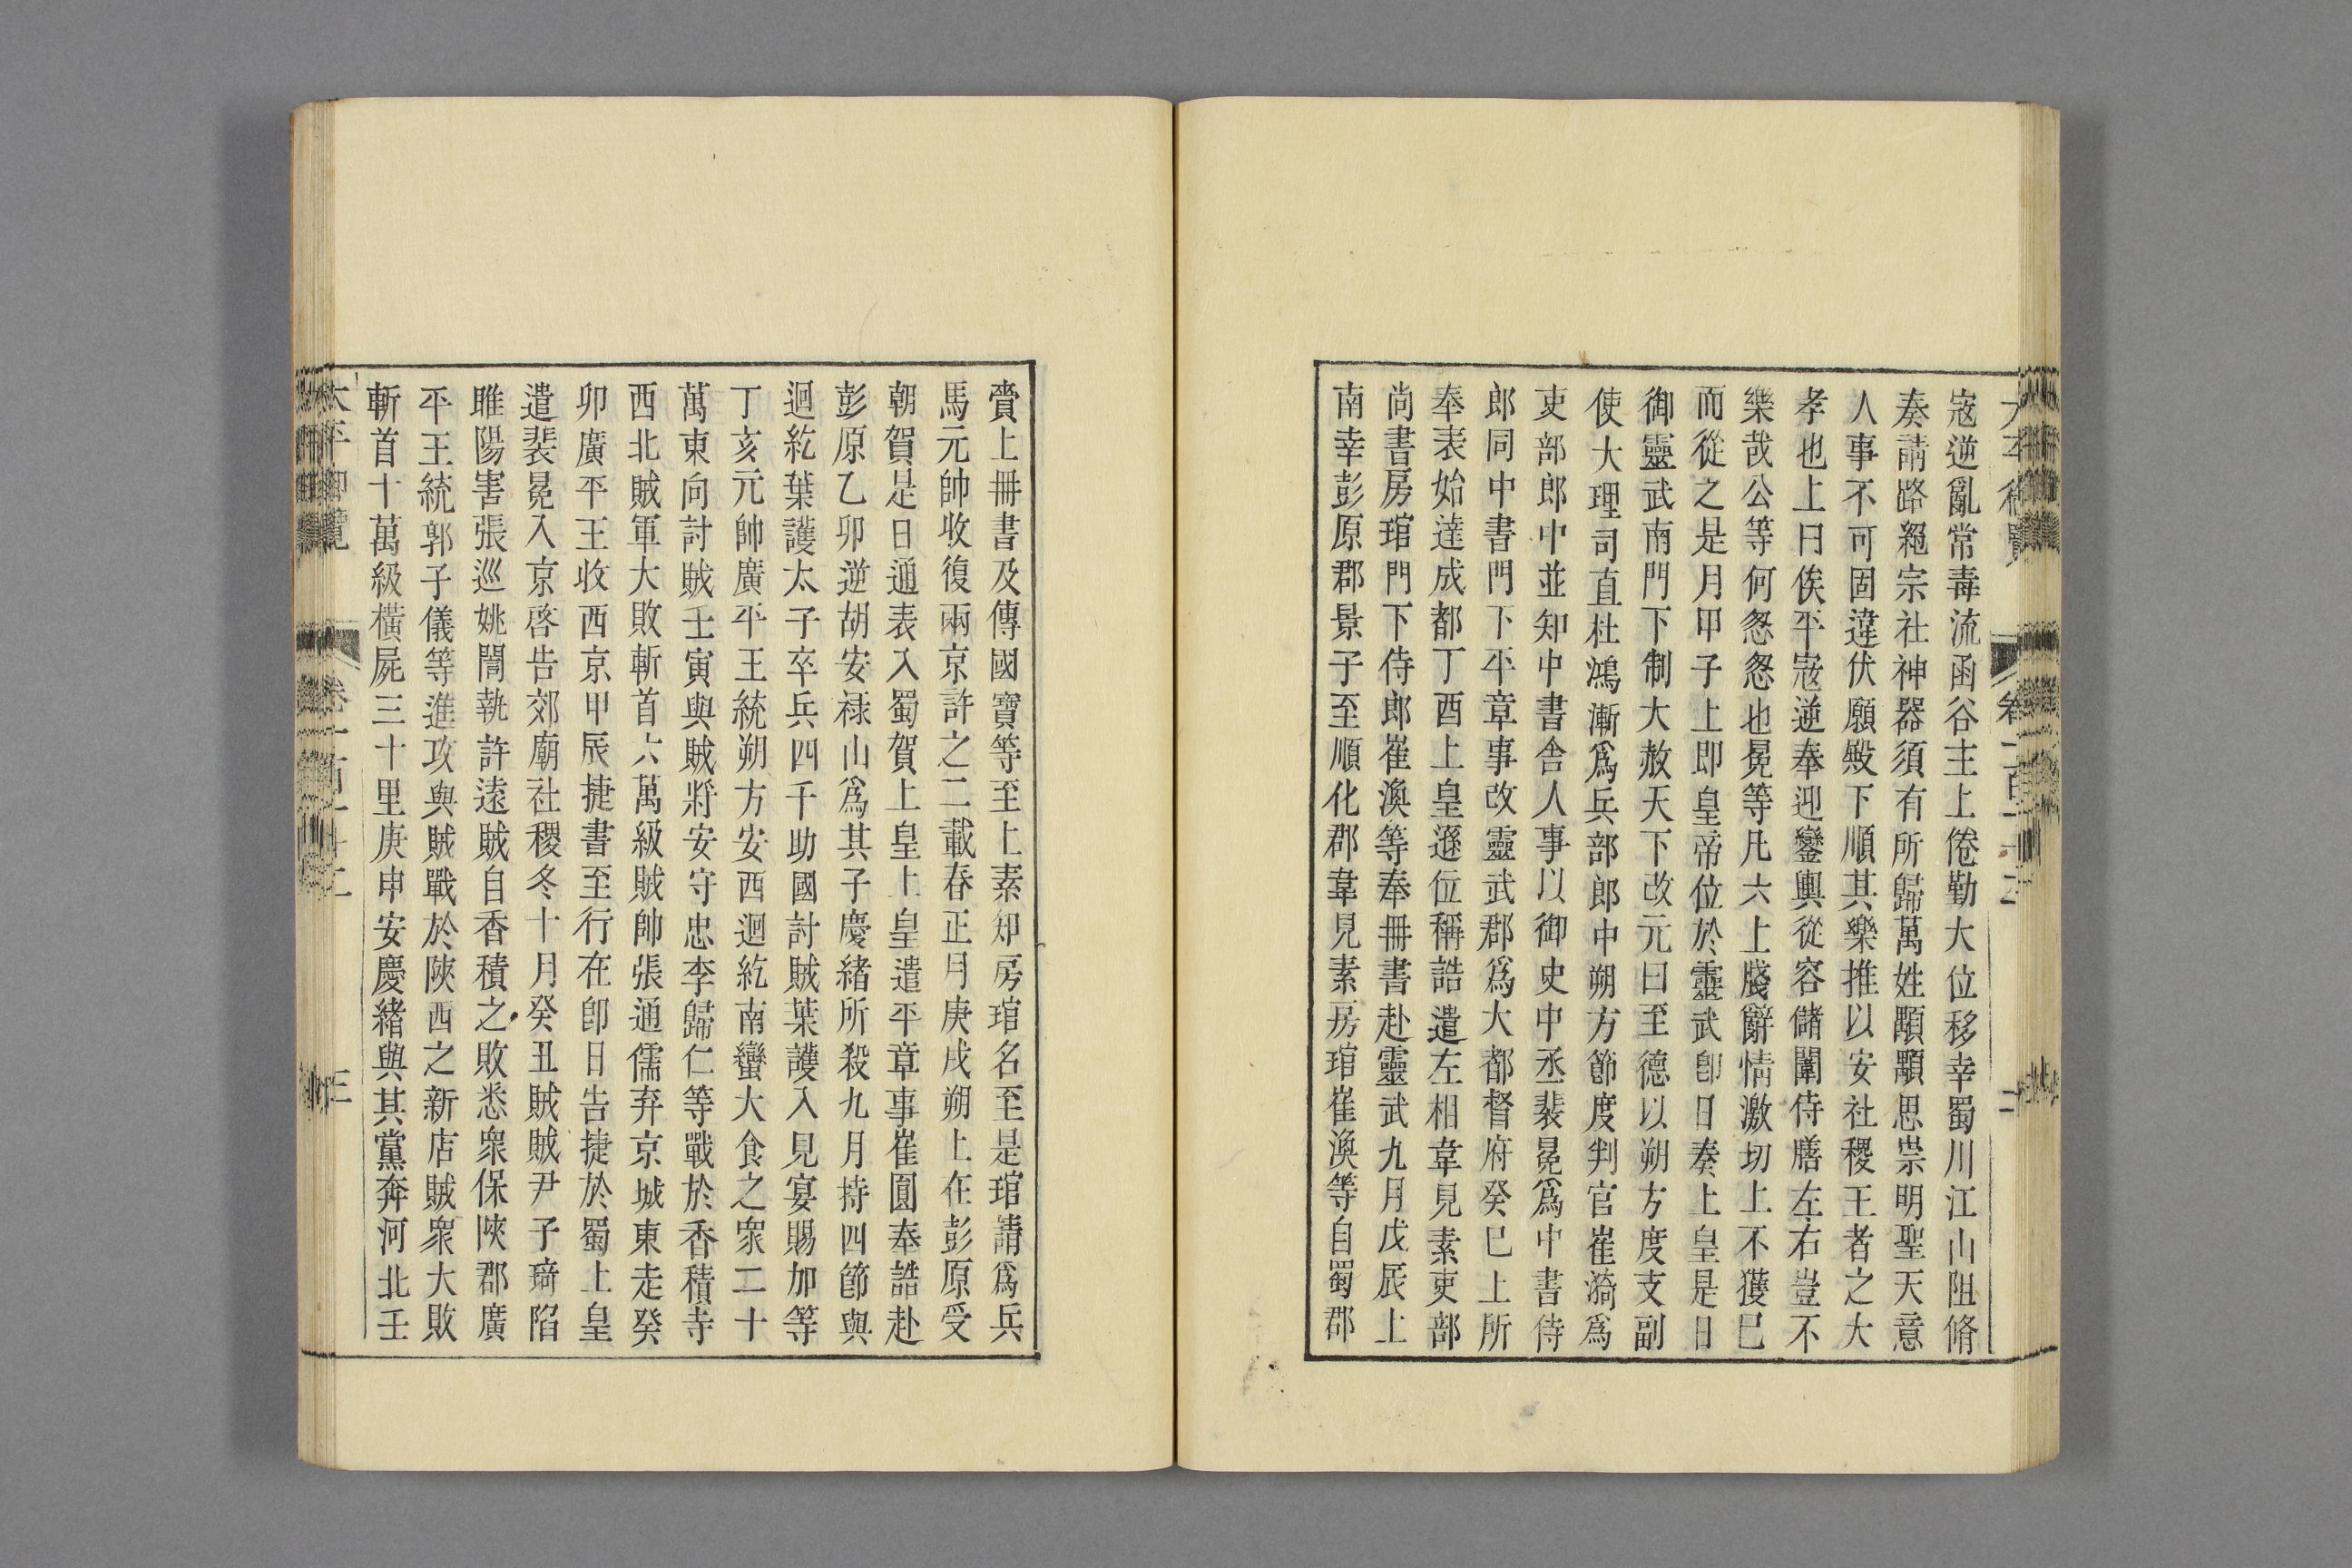 寇逆亂常毒流函谷主上倦勤大位移幸蜀川江山阻脩
奏請路絕宗社神器須有所歸萬姓顒顒思崇明聖天意
人事不可固違伏願殿下順其樂推以安社稷王者之大
孝也上曰俟平寇逆奉迎鑾輿從容儲闈侍膳左右豈不
樂哉公等何怱怱也冕等凡六上牋辭情激切上不獲已
而從之是月甲子上即皇帝位於靈武卽日奏上皇是日
御靈武南門下制大赦天下改元曰至德以朔方度支副
使大理司直杜鴻漸爲兵部郎中朔方節度判官崔漪爲
吏部郎中並知中書舍人事以御史中丞裴冕爲中書侍
郎同中書門下平章事改靈武郡爲大都督府癸巳上所
奉表始達成都丁酉上皇遜位稱誥遣左相韋見素吏部
尚書房琯門下侍郎崔渙等奉冊書赴靈武九月戊辰上
南幸彭原郡景子至順化郡韋見素房琯崔渙等自蜀郡
賫上冊書及傳國寶等至上素知房琯名至是琯請爲兵
馬元帥收復兩京許之二載春正月庚戌朔上在彭原受
朝賀是日通表入蜀賀上皇上皇遣平章事崔圓奉誥赴
彭原乙卯逆胡安祿山爲其子慶緒所殺九月持四節與
迴紇葉護太子卒兵四千助國討賊葉護入見宴賜加等
丁亥元帥廣平王統朔方安西迴紇南蠻大食之衆二十
萬東向討賊壬寅與賊將安守忠李歸仁等戰於香積寺
西北賊軍大敗斬首六萬級賊帥張通儒弃京城東走癸
卯廣平王收西京甲辰捷書至行在卽日告捷於蜀上皇
遣裴冕入京啓告郊廟社稷冬十月癸丑賊賊尹子琦陷
睢陽害張巡姚誾執許遠賊自香積之敗悉衆保陝郡廣
平王統郭子儀等進攻與賊戰於陝西之新店賊衆大敗
斬首十萬級橫屍三十里庚申安慶緒與其黨奔河北壬
太平御覽 卷一百十二 三